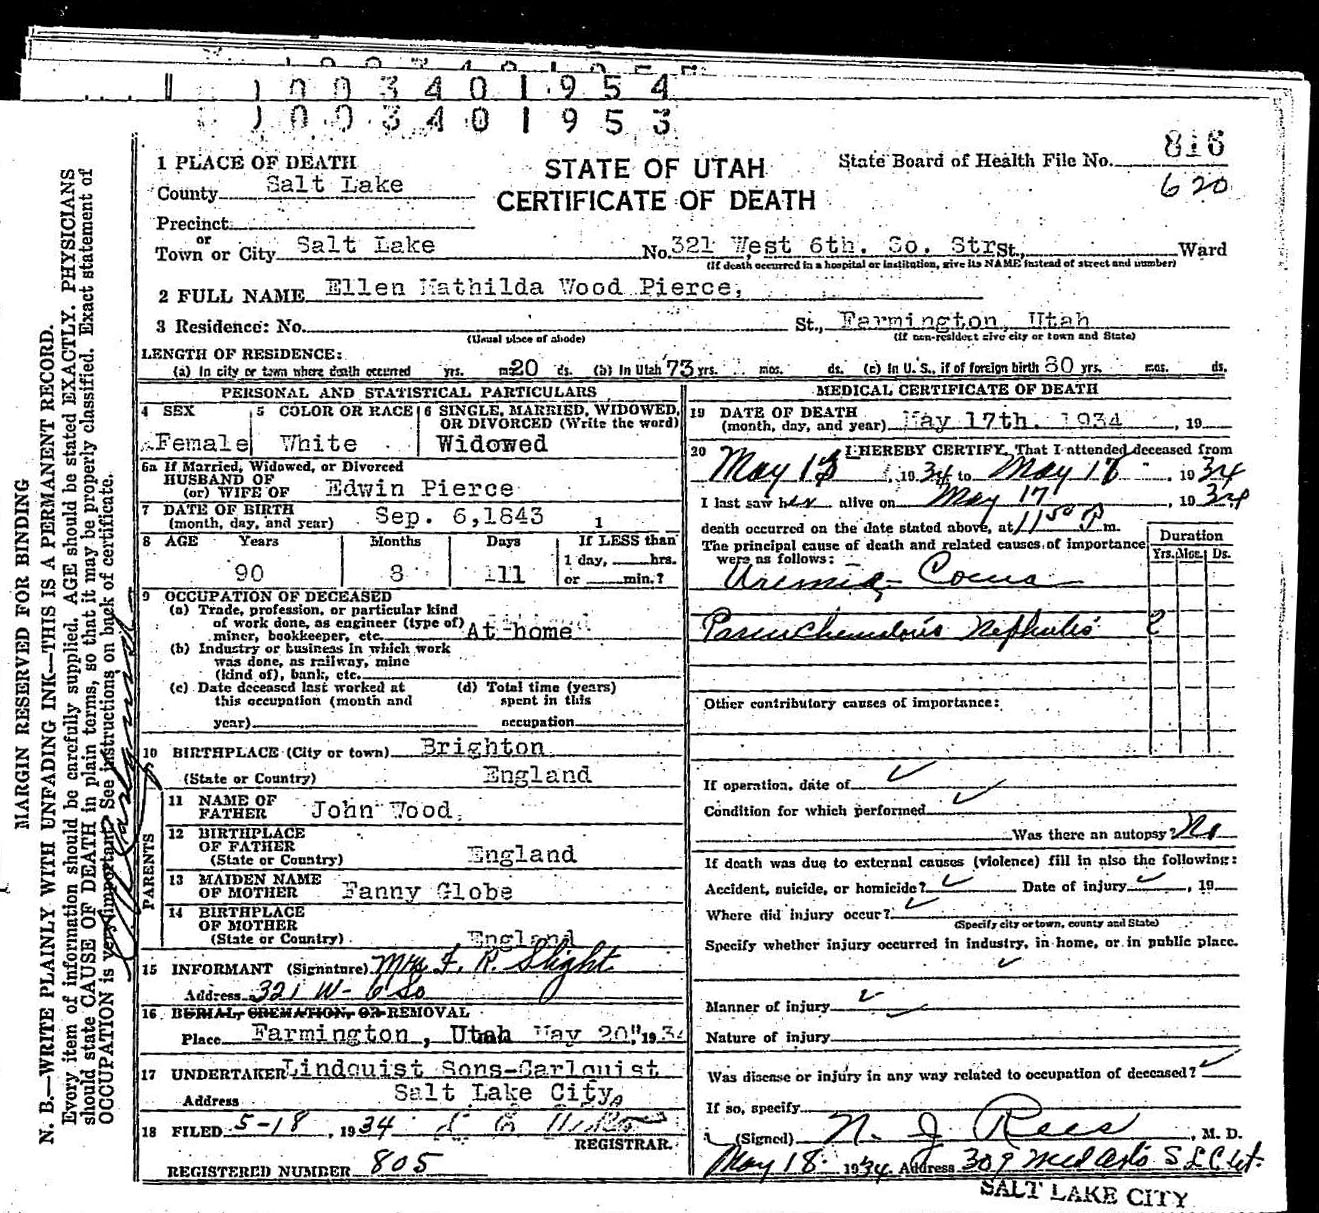 1003401954
1003401953
816
1 PLACE OF DEATH
STATE OF UTAH
State Board of Health File No.
County Salt Lake
CERTIFICATE OF DEATH
620
Precinct
or
Town or City Salt Lake No. 321 West 6th. So. Str St., Ward
(If death occurred in a hospital or institution, give its NAME instead of street and number)
2 FULL NAME Ellen Mathilda Wood Pierce,
3 Residence: No. St., Farmington, Utah
(Usual place of abode) (If non-resident give city or town and State)
LENGTH OF RESIDENCE:
(a) In city or town where death occurred yrs. m 20 ds. (b) In Utah 73 yrs. mos. ds. (c) In U. S., if of foreign birth 80 yrs. mos. ds.
PERSONAL AND STATISTICAL PARTICULARS
4 SEX
Female
5 COLOR OR RACE
White
6 SINGLE, MARRIED, WIDOWED,
OR DIVORCED (Write the word)
Widowed
6a If Married, Widowed, or Divorced
HUSBAND OF
(or) WIFE OF Edwin Pierce
7 DATE OF BIRTH
(month, day, and year) Sep. 6,1843 1
8 AGE Years Months Days If LESS than
1 day, hrs.
90 8 11 or min.?
9 OCCUPATION OF DECEASED
(a) Trade, profession, or particular kind
of work done, as engineer (type of)
miner, bookkeeper, etc. At home
(b) Industry or business in which work
was done, as railway, mine
(kind of), bank, etc.
(c) Date deceased last worked at
this occupation (month and
year)
(d) Total time (years)
spent in this
occupation
10 BIRTHPLACE (City or town) Brighton
(State or Country) England
PARENTS
11 NAME OF
FATHER John Wood.
12 BIRTHPLACE
OF FATHER
(State or Country) England
13 MAIDEN NAME
OF MOTHER Fanny Globe
14 BIRTHPLACE
OF MOTHER
(State or Country) England
15 INFORMANT (Signature) Mrs F. R. Slight
Address 321 W- 6 So
16 BURIAL, CREMATION, OR REMOVAL
Place Farmington, Utah May 20", 1934
17 UNDERTAKER Lindquist Sons-Carlquist
Address Salt Lake City,
18 FILED 5-18, 1934
REGISTRAR.
REGISTERED NUMBER 805
MEDICAL CERTIFICATE OF DEATH
19 DATE OF DEATH
(month, day, and year) May 17th. 1934, 19
20 I HEREBY CERTIFY, That I attended deceased from
May 13, 1934 to May 17, 1934
I last saw her alive on May 17, 1934
death occurred on the date stated above, at 11 50 P m.
The principal cause of death and related causes of importance
were as follows:
Duration
Yrs. Mos. Ds.
Uremia Coma
Parenchematous Nephritis 2
Other contributory causes of importance:
If operation, date of
Condition for which performed
Was there an autopsy? No
If death was due to external causes (violence) fill in also the following:
Accident, suicide, or homicide? Date of injury, 19
Where did injury occur?
(Specify city or town, county and State)
Specify whether injury occurred in industry, in home, or in public place.
Manner of injury
Nature of injury
Was disease or injury in any way related to occupation of deceased?
If so, specify
(Signed) N. J Rees, M. D.
May 18 1934 Address 309 Med Arts S L C Ut.
SALT LAKE CITY
MARGIN RESERVED FOR BINDING
N. B.—WRITE PLAINLY WITH UNFADING INK—THIS IS A PERMANENT RECORD.
Every item of information should be carefully supplied. AGE should be stated EXACTLY. PHYSICIANS
should state CAUSE OF DEATH in plain terms, so that it may be properly classified. Exact statement of
OCCUPATION is very important. See instructions on back of certificate.